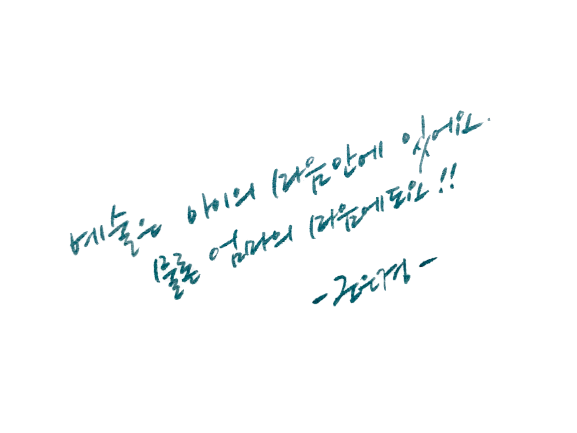 예술은 아이의 마음안에 있어요.
물론 엄마의 마음에도요!!